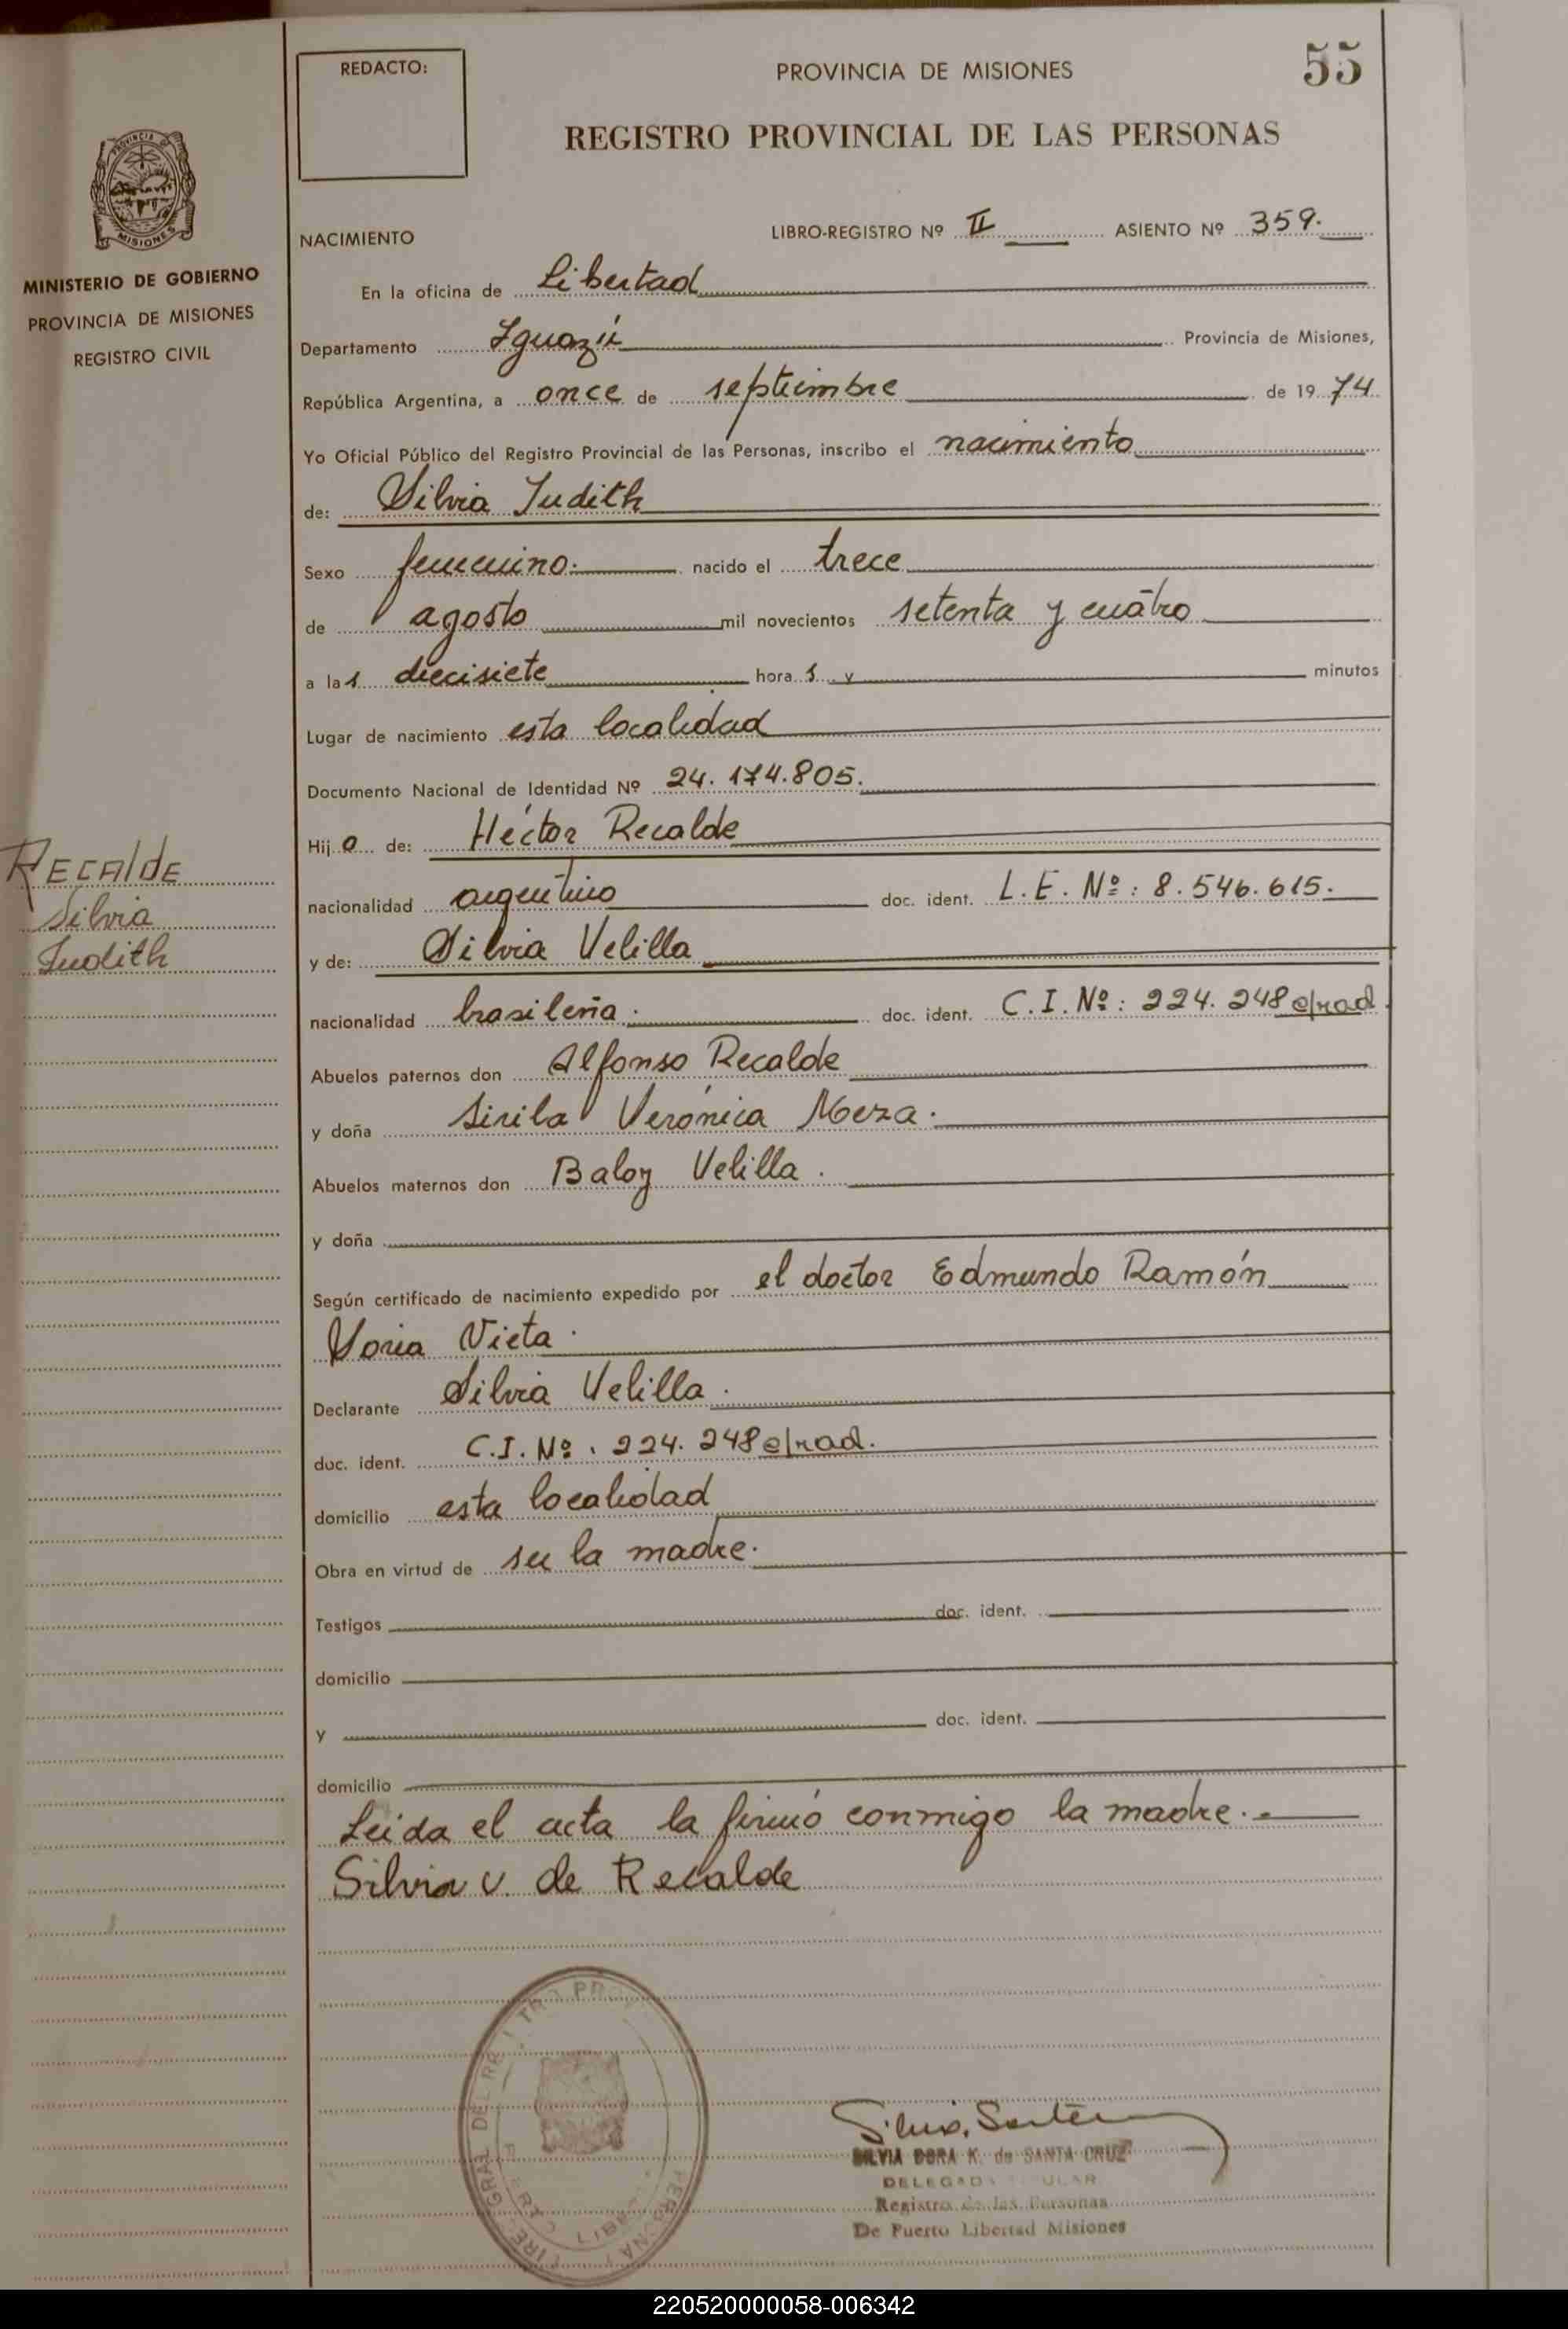 55
REDACTO:
PROVINCIA DE MISIONES
REGISTRO PROVINCIAL DE LAS PERSONAS
MISIONES
MINISTERIO DE GOBIERNO
PROVINCIA DE MISIONES
REGISTRO CIVIL
NACIMIENTO LIBRO-REGISTRO Nº II ASIENTO Nº 359.
En la oficina de Libertad
Departamento Iguazú Provincia de Misiones,
República Argentina, a once de septiembre de 1974
Yo Oficial Público del Registro Provincial de las Personas, inscribo el nacimiento
de: Silvia Judith
Sexo femenino. nacido el trece
de agosto mil novecientos setenta y cuatro
a las diecisiete horas y minutos
Lugar de nacimiento esta localidad
Documento Nacional de Identidad Nº 24.174.805.
Hija de: Héctor Recalde
RECAlde
Silvia
Judith
nacionalidad argentino doc. ident. L.E. Nº: 8.546.615.
y de: Silvia Velilla
nacionalidad brasileña. doc. ident. C.I. Nº: 224.248 c/rad.
Abuelos paternos don Alfonso Recalde
y doña Sirila Verónica Meza.
Abuelos maternos don Baloy Velilla.
y doña
Según certificado de nacimiento expedido por el doctor Edmundo Ramón
Soria Vieta.
Declarante Silvia Velilla.
doc. ident. C.I. Nº. 224.248 c/rad.
domicilio esta localidad
Obra en virtud de ser la madre.
Testigos doc. ident.
domicilio
y doc. ident.
domicilio
Leida el acta la firmó conmigo la madre.-
Silvia V. de Recalde
SILVIA DORA K. de SANTA CRUZ
Registro de las Personas
De Puerto Libertad Misiones
220520000058-006342